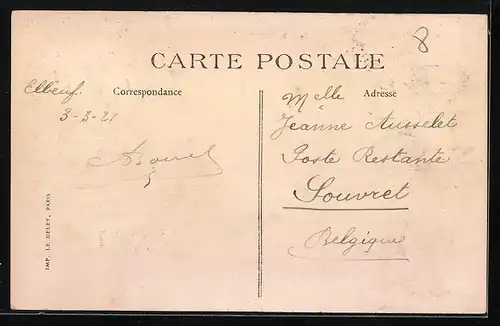 8
CARTE POSTALE
Elbeuf.
3-3-21
Correspondance
Adresse
Melle
Jeanne Ausselet
Poste Restante
Souvret
Belgique
IMP. LE DELEY, PARIS